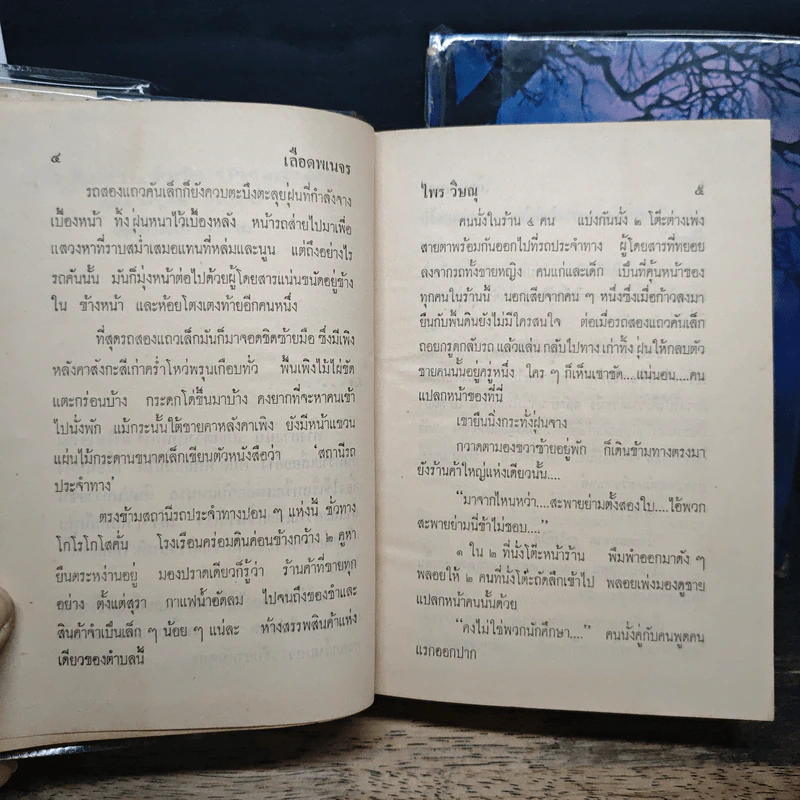 ๔ เลือดพเนจร
รถสองแถวคันเล็กก็ยังควบตะบึงตะลุยฝุ่นที่กำลังจาง
เบื้องหน้า ทิ้งฝุ่นหนาไว้เบื้องหลัง หน้ารถส่ายไปมาเพื่อ
แสวงหาที่ราบสม่ำเสมอแทนที่หล่มและนูน แต่ถึงอย่างไร
รถคันนั้น มันก็มุ่งหน้าต่อไปด้วยผู้โดยสารแน่นขนัดอยู่ข้าง
ใน ข้างหน้า และห้อยโตงเตงท้ายอีกคนหนึ่ง
ที่สุดรถสองแถวเล็กมันก็มาจอดชิดซ้ายมือ ซึ่งมีเพิง
หลังคาสังกะสีเก่าคร่ำโหว่พรุนเกือบทั่ว พื้นเพิงไม้ไผ่ขัด
แตะกร่อนบ้าง กระดกโด่ขึ้นมาบ้าง คงยากที่จะหาคนเข้า
ไปนั่งพัก แม้กระนั้นใต้ชายคาหลังคาเพิง ยังมีหน้าแขวน
แผ่นไม้กระดานขนาดเล็กเขียนตัวหนังสือว่า ‘สถานีรถ
ประจำทาง’
ตรงข้ามสถานีรถประจำทางปอน ๆ แห่งนี้ ชั่วทาง
โกโรโกโสคั่น โรงเรือนคร่อมดินค่อนข้างกว้าง ๒ คูหา
ยืนตระหง่านอยู่ มองปราดเดียวก็รู้ว่า ร้านค้าที่ขายทุก
อย่าง ตั้งแต่สุรา กาแฟน้ำอัดลม ไปจนถึงของชำและ
สินค้าจำเป็นเล็ก ๆ น้อย ๆ แน่ละ ห้างสรรพสินค้าแห่ง
เดียวของตำบลนี้
ไพร วิษณุ ๕
คนนั่งในร้าน ๔ คน แบ่งกันนั่ง ๒ โต๊ะต่างเพ่ง
สายตาพร้อมกันออกไปที่รถประจำทาง ผู้โดยสารที่ทยอย
ลงจากรถทั้งชายหญิง คนแก่และเด็ก เป็นที่คุ้นหน้าของ
ทุกคนในร้านนี้ นอกเสียจากคน ๆ หนึ่งซึ่งเมื่อก้าวลงมา
ยืนกับพื้นดินยังไม่มีใครสนใจ ต่อเมื่อรถสองแถวคันเล็ก
ถอยกรูดกลับรถ แล้วแล่น กลับไปทาง เก่าทิ้ง ฝุ่นให้กลบตัว
ชายคนนั้นอยู่ครู่หนึ่ง ใคร ๆ ก็เห็นเขาชัด....แน่นอน....คน
แปลกหน้าของที่นี่
เขายืนนิ่งกระทั่งฝุ่นจาง
กวาดตามองขวาซ้ายอยู่พัก ก็เดินข้ามทางตรงมา
ยังร้านค้าใหญ่แห่งเดียวนั้น....
“มาจากไหนหว่า....สะพายย่ามตั้งสองใบ....ไอ้พวก
สะพายย่ามนี่ข้าไม่ชอบ....”
๑ ใน ๒ ที่นั่งโต๊ะหน้าร้าน พึมพำออกมาดัง ๆ
พลอยให้ ๒ คนที่นั่งโต๊ะถัดลึกเข้าไป พลอยเพ่งมองดูชาย
แปลกหน้าคนนั้นด้วย
“คงไม่ใช่พวกนักศึกษา....” คนนั่งคู่กับคนพูดคน
แรกออกปาก